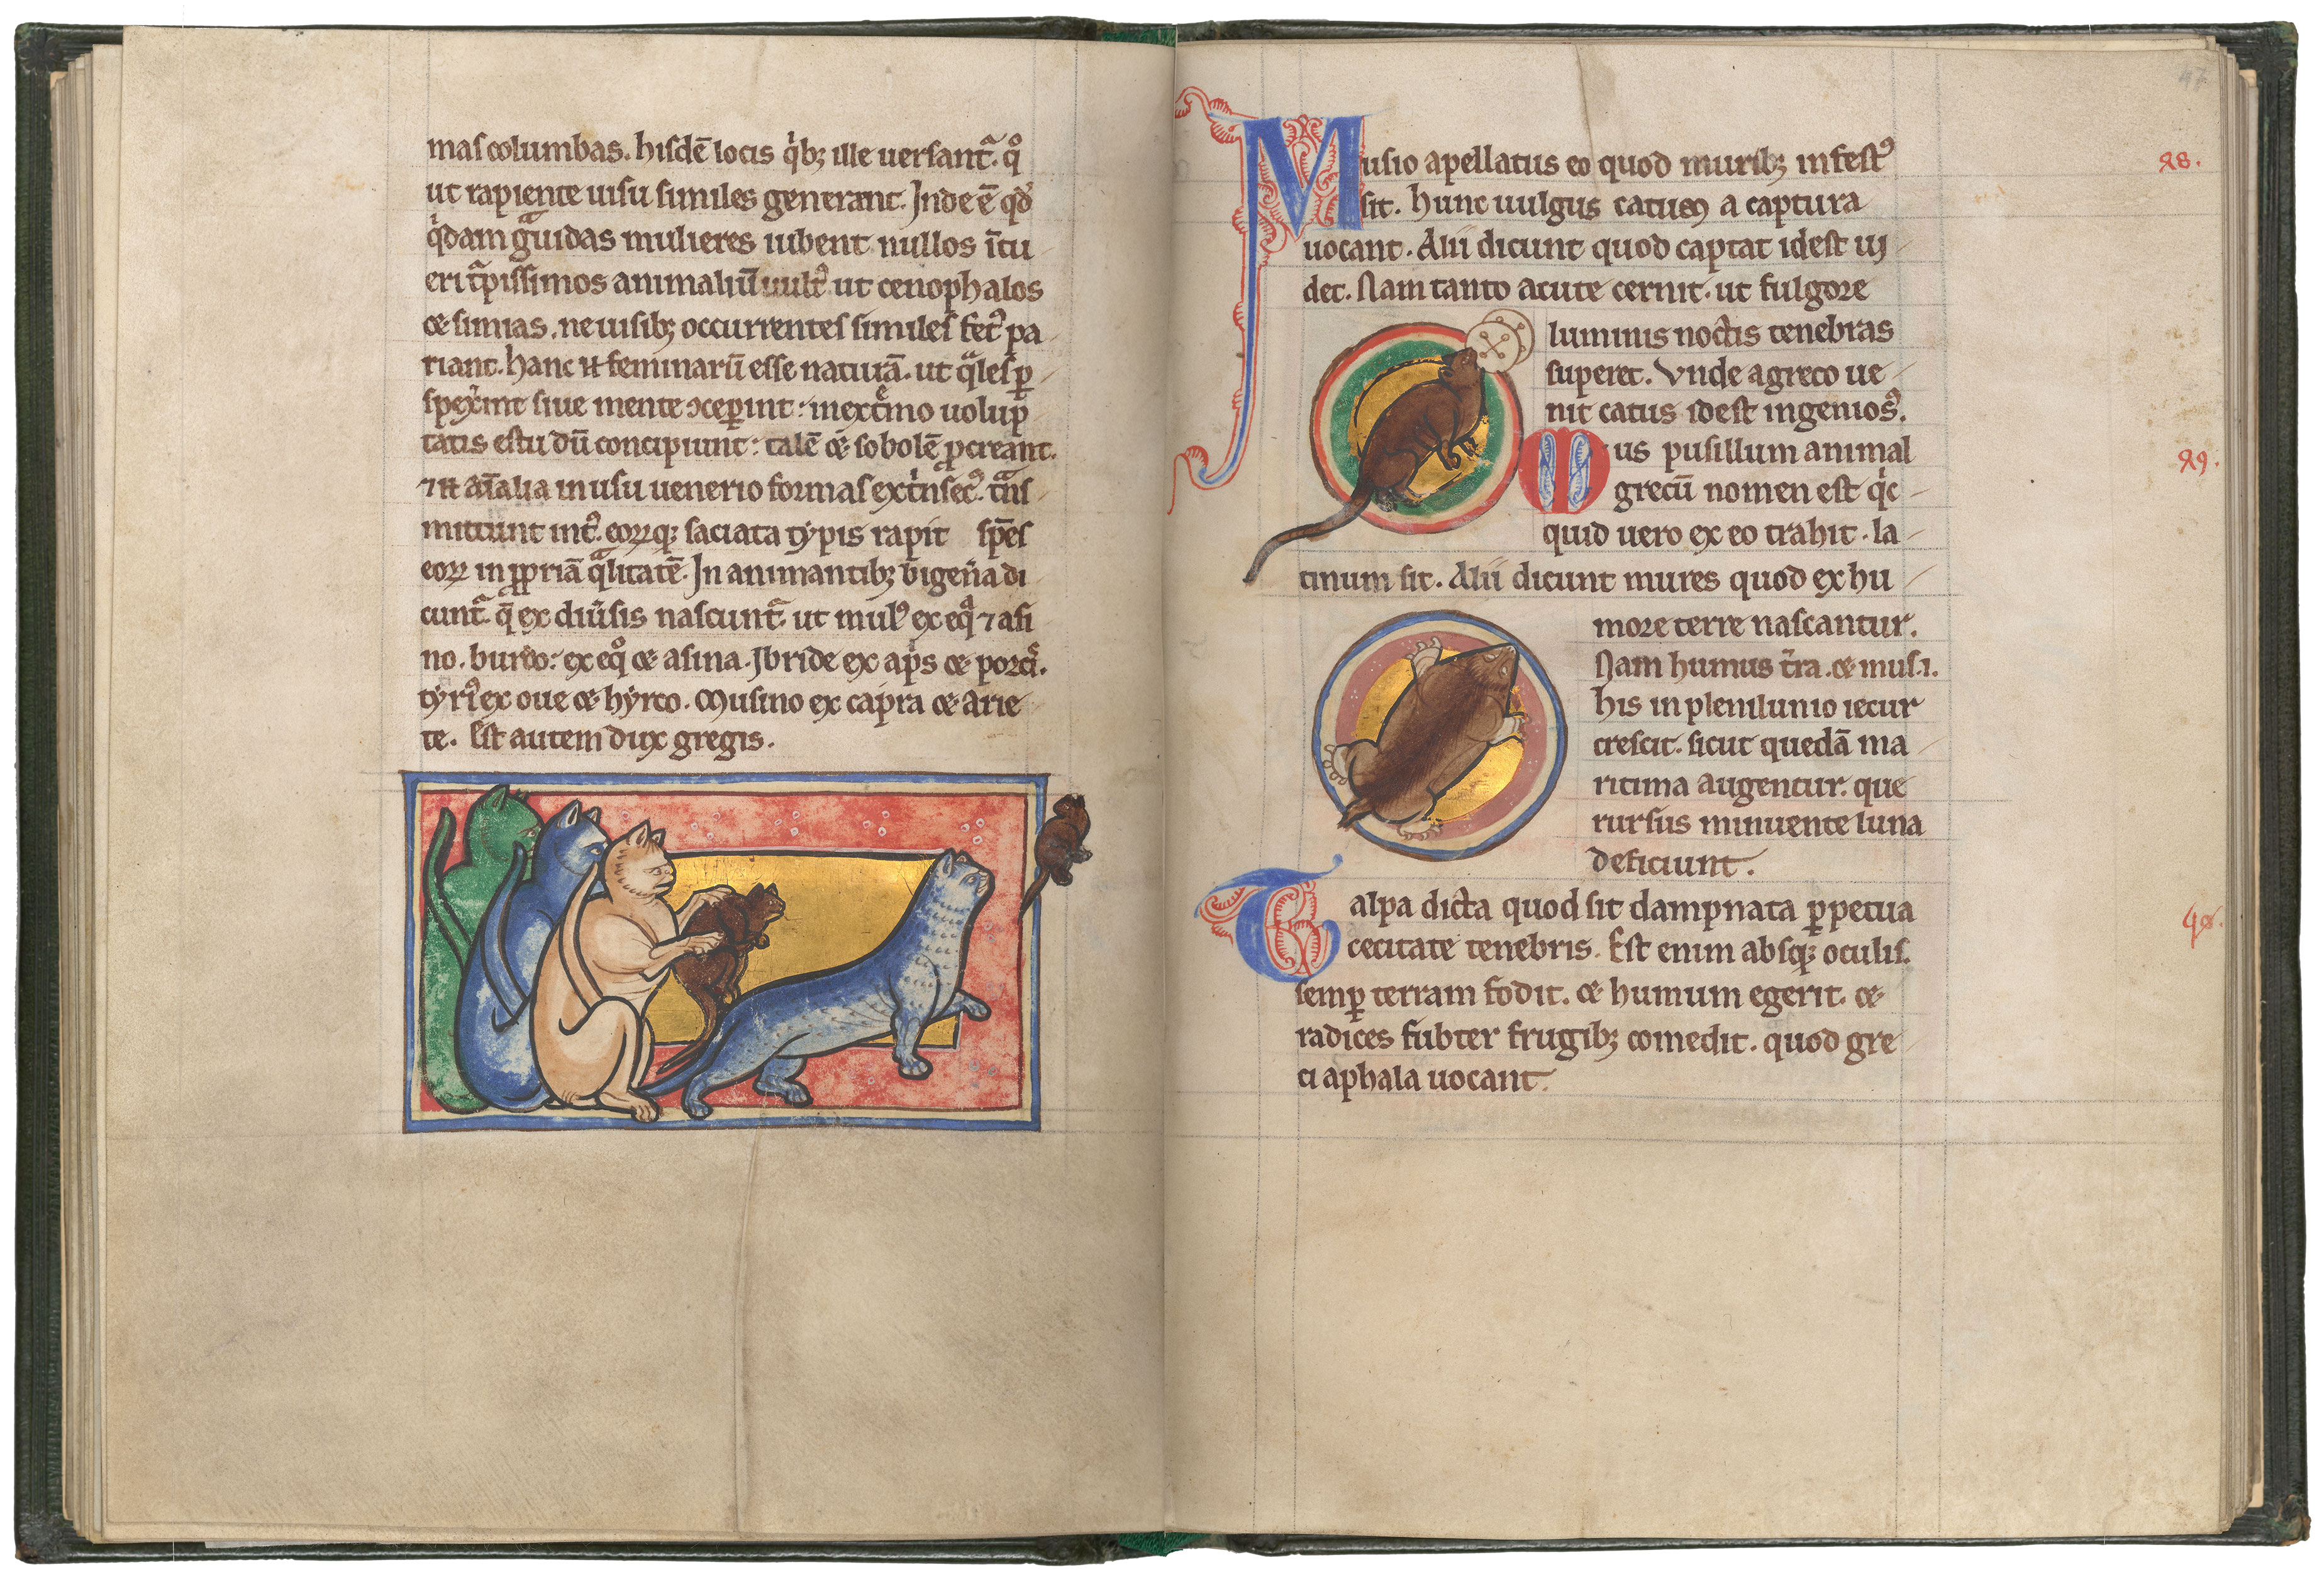 mas columbas. hisdē locis q̇bꝫ ille uersant᷑. qͦ
ut rapiente uisu similes generant. Inde ē qd̛
q̇dam gᷓuidas mulieres iubent nullos ītu
eri tᷓpissimos animaliū uult᷒ ut cenophalos
⁊ simias. ne uisibꝫ occurrentes similes fet᷒ pa
riant. hanc .n. feminarū esse naturā. ut qᷓles ꝑ
spex̓int siue mente ↄceꝑint: in ext᷑mo uolup
tatis estu dū concipiunt: talē ⁊ sobolē ꝓcreant.
⁊ .n. aīalia in usu uenerio formas ext̓nsec᷒ tᷓns
mittunt int᷒. eorꝝqꝫ saciata typis rapit spēs
eorꝝ in ꝓpriā qᷓlitatē. In animantibꝫ bigen̓a di
cunt᷑ q̄ ex diu̓sis nascunt᷑. ut mul᷒ ex eqᷓ ⁊ asi
no. burdo: ex eqͦ ⁊ asina. Ibride ex apͥs ⁊ porcͥ.
tyri᷒ ex oue ⁊ hyrco. Musino ex capra ⁊ arie
te. Est autem dux gregis.
Musio apellatus eo quod muribꝫ infest᷒
sit. hunc uulgus catum a captura
uocant. Alii dicunt quod captat idest ui
det. Nam tanto acute cernit. ut fulgore
luminis noctis tenebras
superet. Vnde a greco ue
nit catus idest ingenios᷒.
Mus pusillum animal
grecū nomen est qͥc
quid uero ex eo trahit. la
tinum fit. Alii dicunt mures quod ex hu
more terre nascantur.
Nam humus t̓ra. ⁊ mus .i.
his in plenilunio iecur
crescit. sicut quedā ma
ritima augentur. que
rursus minuente luna
deficiunt.
Talpa dicta quod sit dampnata ꝑpetua
cecitate tenebris. Est enim absqꝫ oculis.
semꝑ terram fodit. ⁊ humum egerit. ⁊
radices subter frugibꝫ comedit. quod gre
ci aphala uocant.
47
38.
39.
40.